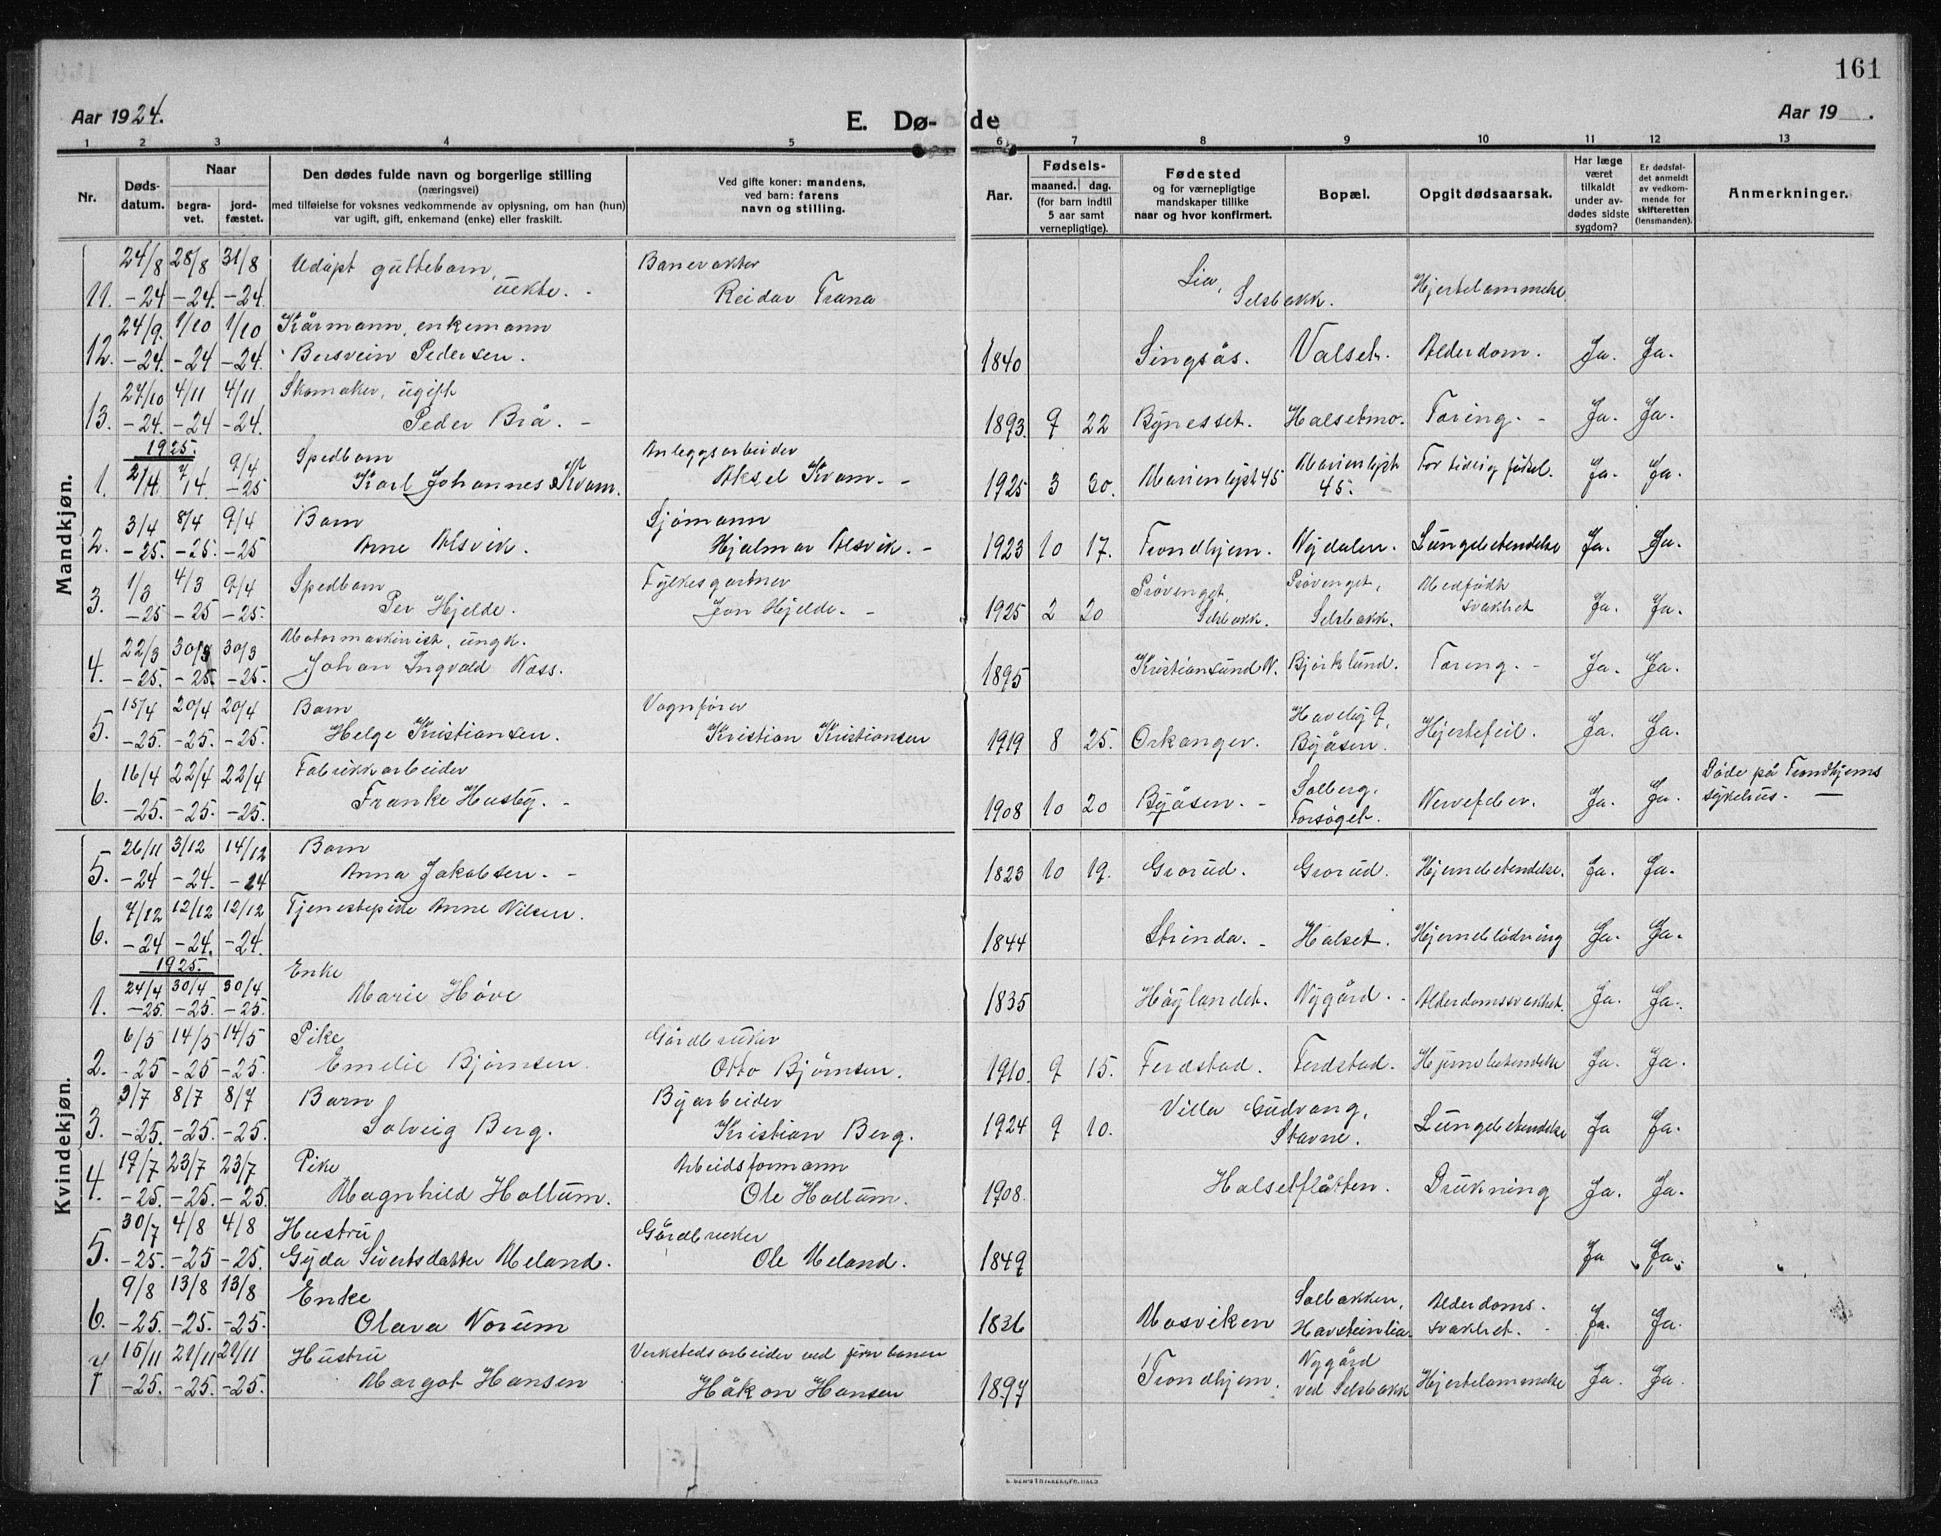 161
Aar 1924.
E. Dø-de
Aar 19 .
1 2 3 4 5 6 7 8 9 10 11 12 13
Nr.
Døds-datum.
Naar
begra-vet.
jord-fæstet.
Den dødes fulde navn og borgerlige stilling
(næringsvei)
med tilføielse for voksnes vedkommende av oplysning, om han (hun)
var ugift, gift, enkemand (enke) eller fraskilt.
Ved gifte koner: mandens,
ved barn: farens
navn og stilling.
Aar.
Fødsels-
maaned. dag.
(for barn indtil
5 aar samt
vernepligtige).
Fødested
og for værnepligtige
mandskaper tillike
naar og hvor konfirmert.
Bopæl.
Opgit dødsaarsak.
Har læge
været
tilkaldt
under av-
dødes sidste
sygdom?
Er dødsfal-
det anmeldt
av vedkom-
mende for
skifteretten
(lensmanden).
Anmerkninger.
Mandkjøn.
24/8 28/8 31/8 Udøpt guttebarn, Banevokter
11. -24 -24. -24. uekte. - Reidar Trana Lia, Selsbakk. Hjertelammelse
24/9. 1/10 1/10 Kårmann, enkemann
12. -24. -24 -24. Bersvein Pedersen. 1840 Singsås. Valset. Alderdom. Ja. Ja.
27/10 4/11 4/11 Skomaker, ugift
13. -24. -24 -24. Peder Brå. - 1893. 9 22 Bynesset. Halsetmo. Tæring. - Ja. Ja.
1925.
2/4 7/4 9/4 Spedbarn Anleggsarbeider
1. -25 Karl Johannes Kvam. Aksel Kvam. - 1925 3 30. Marienlyst 45 Marienlyst 45. For tidlig fødsel. Ja. Ja.
3/4 8/4 9/4 Barn Sjømann
2. -25. -25. -25 Arne Alsvik. Hjalmar Alsvik. - 1923 10 17. Trondhjem. Nydalen. Lungebetendelse Ja. Ja.
1/3 4/3 9/4 Spedbarn Fylkesgartner
3. -25 -25 -25. Per Hjelde. Jon Hjelde. - 1925 2 20 Prøvenget, Selsbakk. Prøvenget, Selsbakk. Medfødt svakhet Ja. Ja.
22/3 30/3 30/3 Motormaskinist, ungk.
4. -25. -25. -25. Johan Ingvald Næss. 1895 Kristiansund N. Bjørklund. Tæring. - Ja. Ja.
15/4 20/4 20/4 Barn Vognfører
5. -25. -25. -25. Helge Kristiansen. Kristian Kristiansen 1919 8 25. Orkanger. Byåsen. Hjertefeil. Ja. Ja.
16/4 22/4 22/4 Fabrikkarbeider
6. -25. -25. -25. Franke Husby. - 1908 10 20 Byåsen. - Solberg, Forsøget. Nervefeber. Ja. Ja. Døde på Trondhjems sykehus.
Kvindekjøn.
26/11 3/12 14/12 Barn
5. -24 -24. -24 Anna Jakobsen. - 1823 10 19. Grorud. Grorud. Hjernebetendelse. Ja. Ja.
7/12 12/12 12/12 Tjenestepike Anne Nilsen.
6. -24 -24. -24. 1844 Strinda. - Halset. Hjerneblødning Ja. Ja.
1925.
24/4 30/4 30/4 Enke
1. -25. -25. -25. Marie Høve 1835 Høylandet. Nygård. - Alderdomssvakhet. Ja. Ja.
6/5 14/5 14/5 Pike Gårdbruker
2. -25 -25. -25. Emelie Bjørnsen. Otto Bjørnsen. 1910. 9 15. Ferdstad. Ferdstad. Hjernebetendelse Ja. Ja.
3/7 8/7 8/7 Barn Byarbeider
3. -25. -25. -25. Solveig Berg. Kristian Berg. 1924 9 10. Villa Gudvang, Stavne. Lungebetendelse Ja Ja.
19/7 23/7 23/7 Pike Arbeidsformann
4. -25. -25. -25. Magnhild Hollum. Ole Hollum. 1908. Halsetflåtten. Drukning Ja. Ja.
30/7 4/8 4/8 Hustru Gårdbruker
5. -25. -25 -25. Gyda Sivertsdatter Meland. Ole Meland. 1849 Ja Ja.
9/8 13/8 13/8 Enke
6. -25. -25. -25. Olava Norum 1836 Mosviken Solbakken, Havsteinlia. Alderdoms-svakhet. - Ja. Ja.
15/11 21/11 21/11 Hustru Verkstedsarbeider ved jernbanen
7 -25. -25. -25. Margot Hansen Håkon Hansen 1897 Trondhjem. Nygård ved Selsbakk Hjertelammelse Ja. Ja.